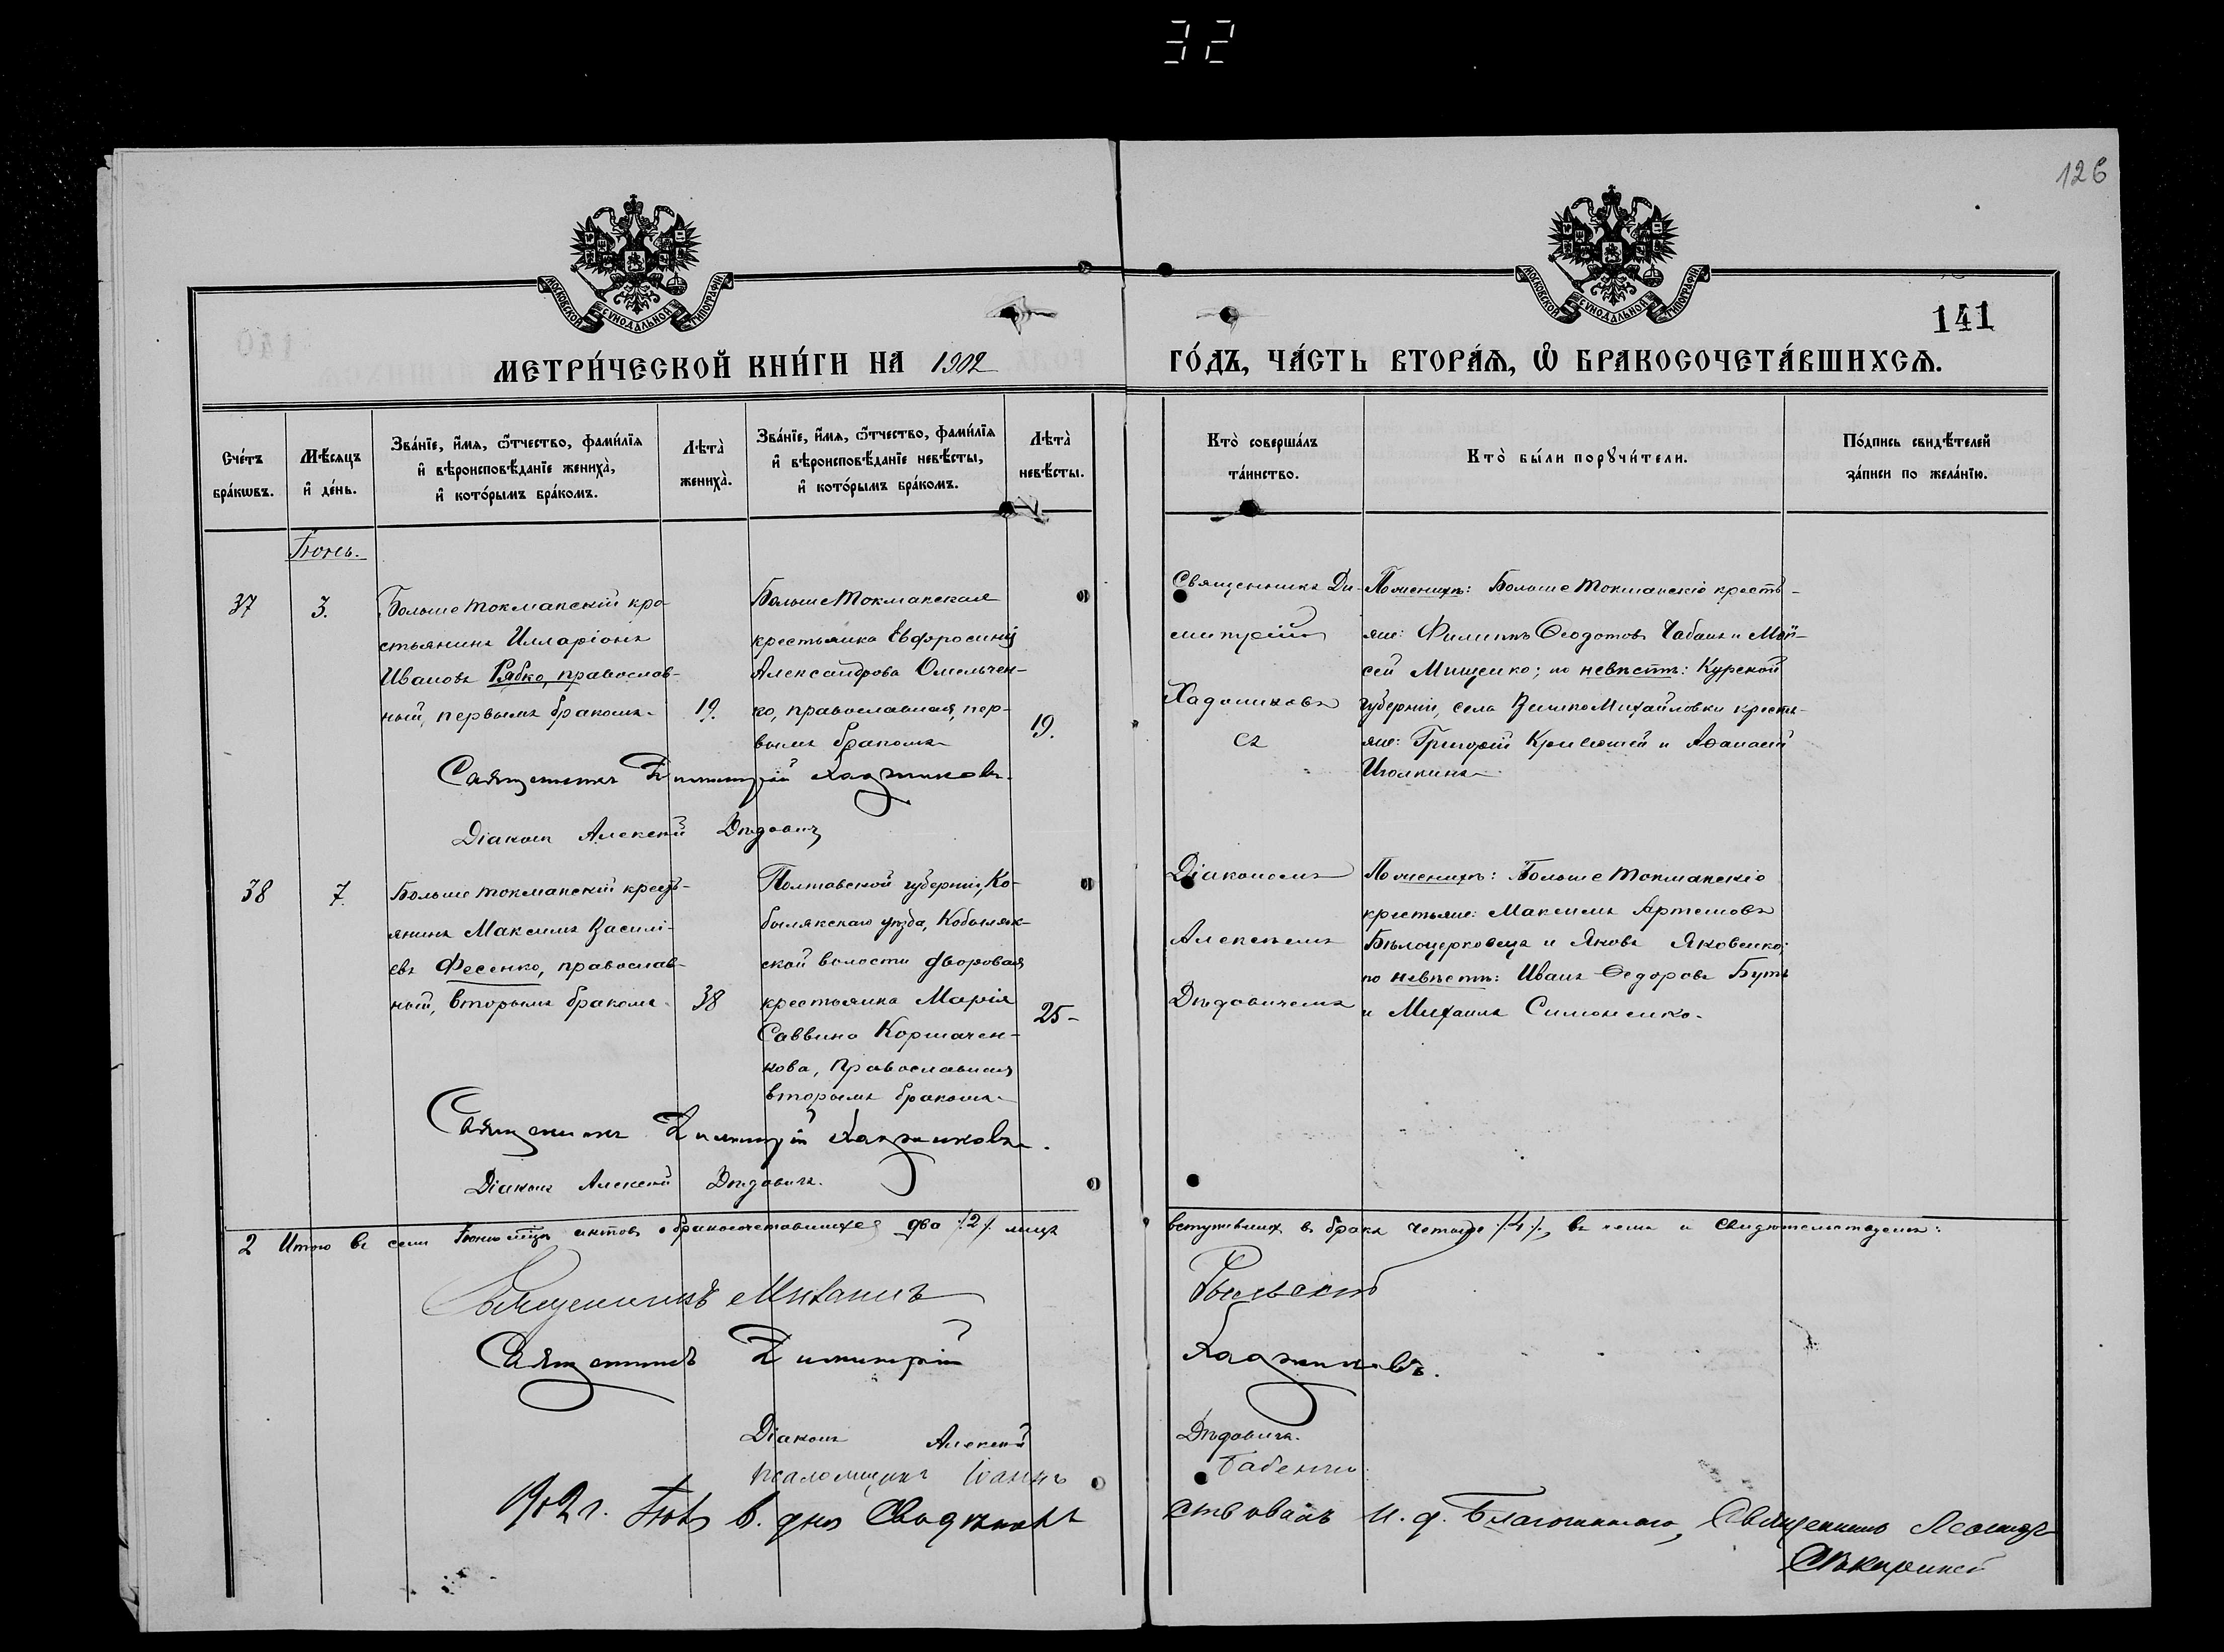 32
126
МОСКОВСКОЙ СѴНОДАЛЬНОЙ ТИПОГРАФІИ
МОСКОВСКОЙ СѴНОДАЛЬНОЙ ТИПОГРАФІИ
141
МЕТРИ́ЧЕСКОЙ КНИ́ГИ НА 1902
ГО́ДЪ, ЧА́СТЬ ВТОРА́Ѧ, Ѽ БРАКОСОЧЕТА́ВШИХСѦ.
Сче́тъ
бра́кѡвъ.
Мѣ́сяцъ
и҆ де́нь.
Зва́нїе, и҆́мѧ, ѻ҆́тчество, фамилїѧ
и҆ вѣроисповѣ́данїе жениха̀,
и҆ кото́рымъ бра́комъ.
Лѣта̀
жениха̀.
Зва́нїе, и҆́мѧ, ѻ҆́тчество, фамилїѧ
и҆ вѣроисповѣ́данїе невѣ́сты,
и҆ кото́рымъ бра́комъ.
Лѣта̀
невѣ́сты.
Кто̀ соверша́лъ
та́инство.
Кто̀ бы́ли порꙋчи́тели.
По́дпись свидѣ́телей
за́писи по жела́нїю.
Іюнь.
37
3.
Больше Токмакскій кре
стьянинъ Илларіонъ
Ивановъ Рябко, православ-
ный, первымъ бракомъ.
19.
Больше Токмакская
крестьянка Евфросинія
Александрова Омельчен-
ко, православная, пер-
вымъ бракомъ
19.
Священникъ Ди-
митрій
Хаджиковъ
съ
По женихѣ: Больше Токмакскіе кресть-
яне: Филиппъ Ѳеодотовъ Чабанъ и Мои-
сей Мищенко; по невѣстѣ: Курской
губерніи, села Велико Михайловки кресть-
яне: Григорій и Аѳанасій
Священникъ Димитрій Хаджиковъ.
Діаконъ Алексѣй Дѣдовичъ
38
7.
Больше токмакскій кресть-
янинъ Максимъ Василі-
евъ Фесенко, православ-
ный, вторымъ бракомъ.
38
Полтавской губерніи, Ко-
белякскаго уѣзда, Кобеляк-
ской волости дворовая
крестьянка Марія
Саввина Кормачен-
кова, православная
вторымъ бракомъ
25-
Діакономъ
Алексѣемъ
Дѣдовичемъ
По женихѣ: Больше Токмакскіе
крестьяне: Максимъ Артемовъ
Бѣлоцерковецъ и Яковъ Яковенко;
по невѣстѣ: Иванъ Ѳедоровъ Буть
и Михаилъ Симоненко.
Священникъ Димитрій Хаджиковъ.
Діаконъ Алексѣй Дѣдовичъ.
2 Итого въ семъ Іюнѣ м-цѣ актовъ о бракосочетавшихся два /2/ лицъ вступившихъ въ бракъ четыре /4/, въ чемъ и свидѣтельствуемъ:
Священникъ Михаилъ
Священникъ Димитрій Хаджиковъ.
Діаконъ Алексѣй Дѣдовичъ.
Псаломщикъ Іоаннъ Бабенко
1902 г. дня Свидѣтельствовалъ И. д. Благочиннаго, Священникъ